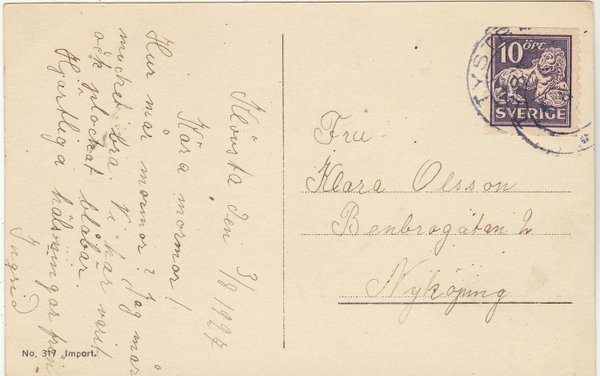 Klövsta den 3/8 1927
Kära mormor!
Hur mår mormor? Jag mår
mycket bra. Vi har varit
och plockat blåbär.
Hjärtliga hälsningar från
Ingrid
No. 317 Import.
10 ÖRE
SVERIGE
TYST
Fru
Klara Olsson
Benbrogatan 2
Nyköping